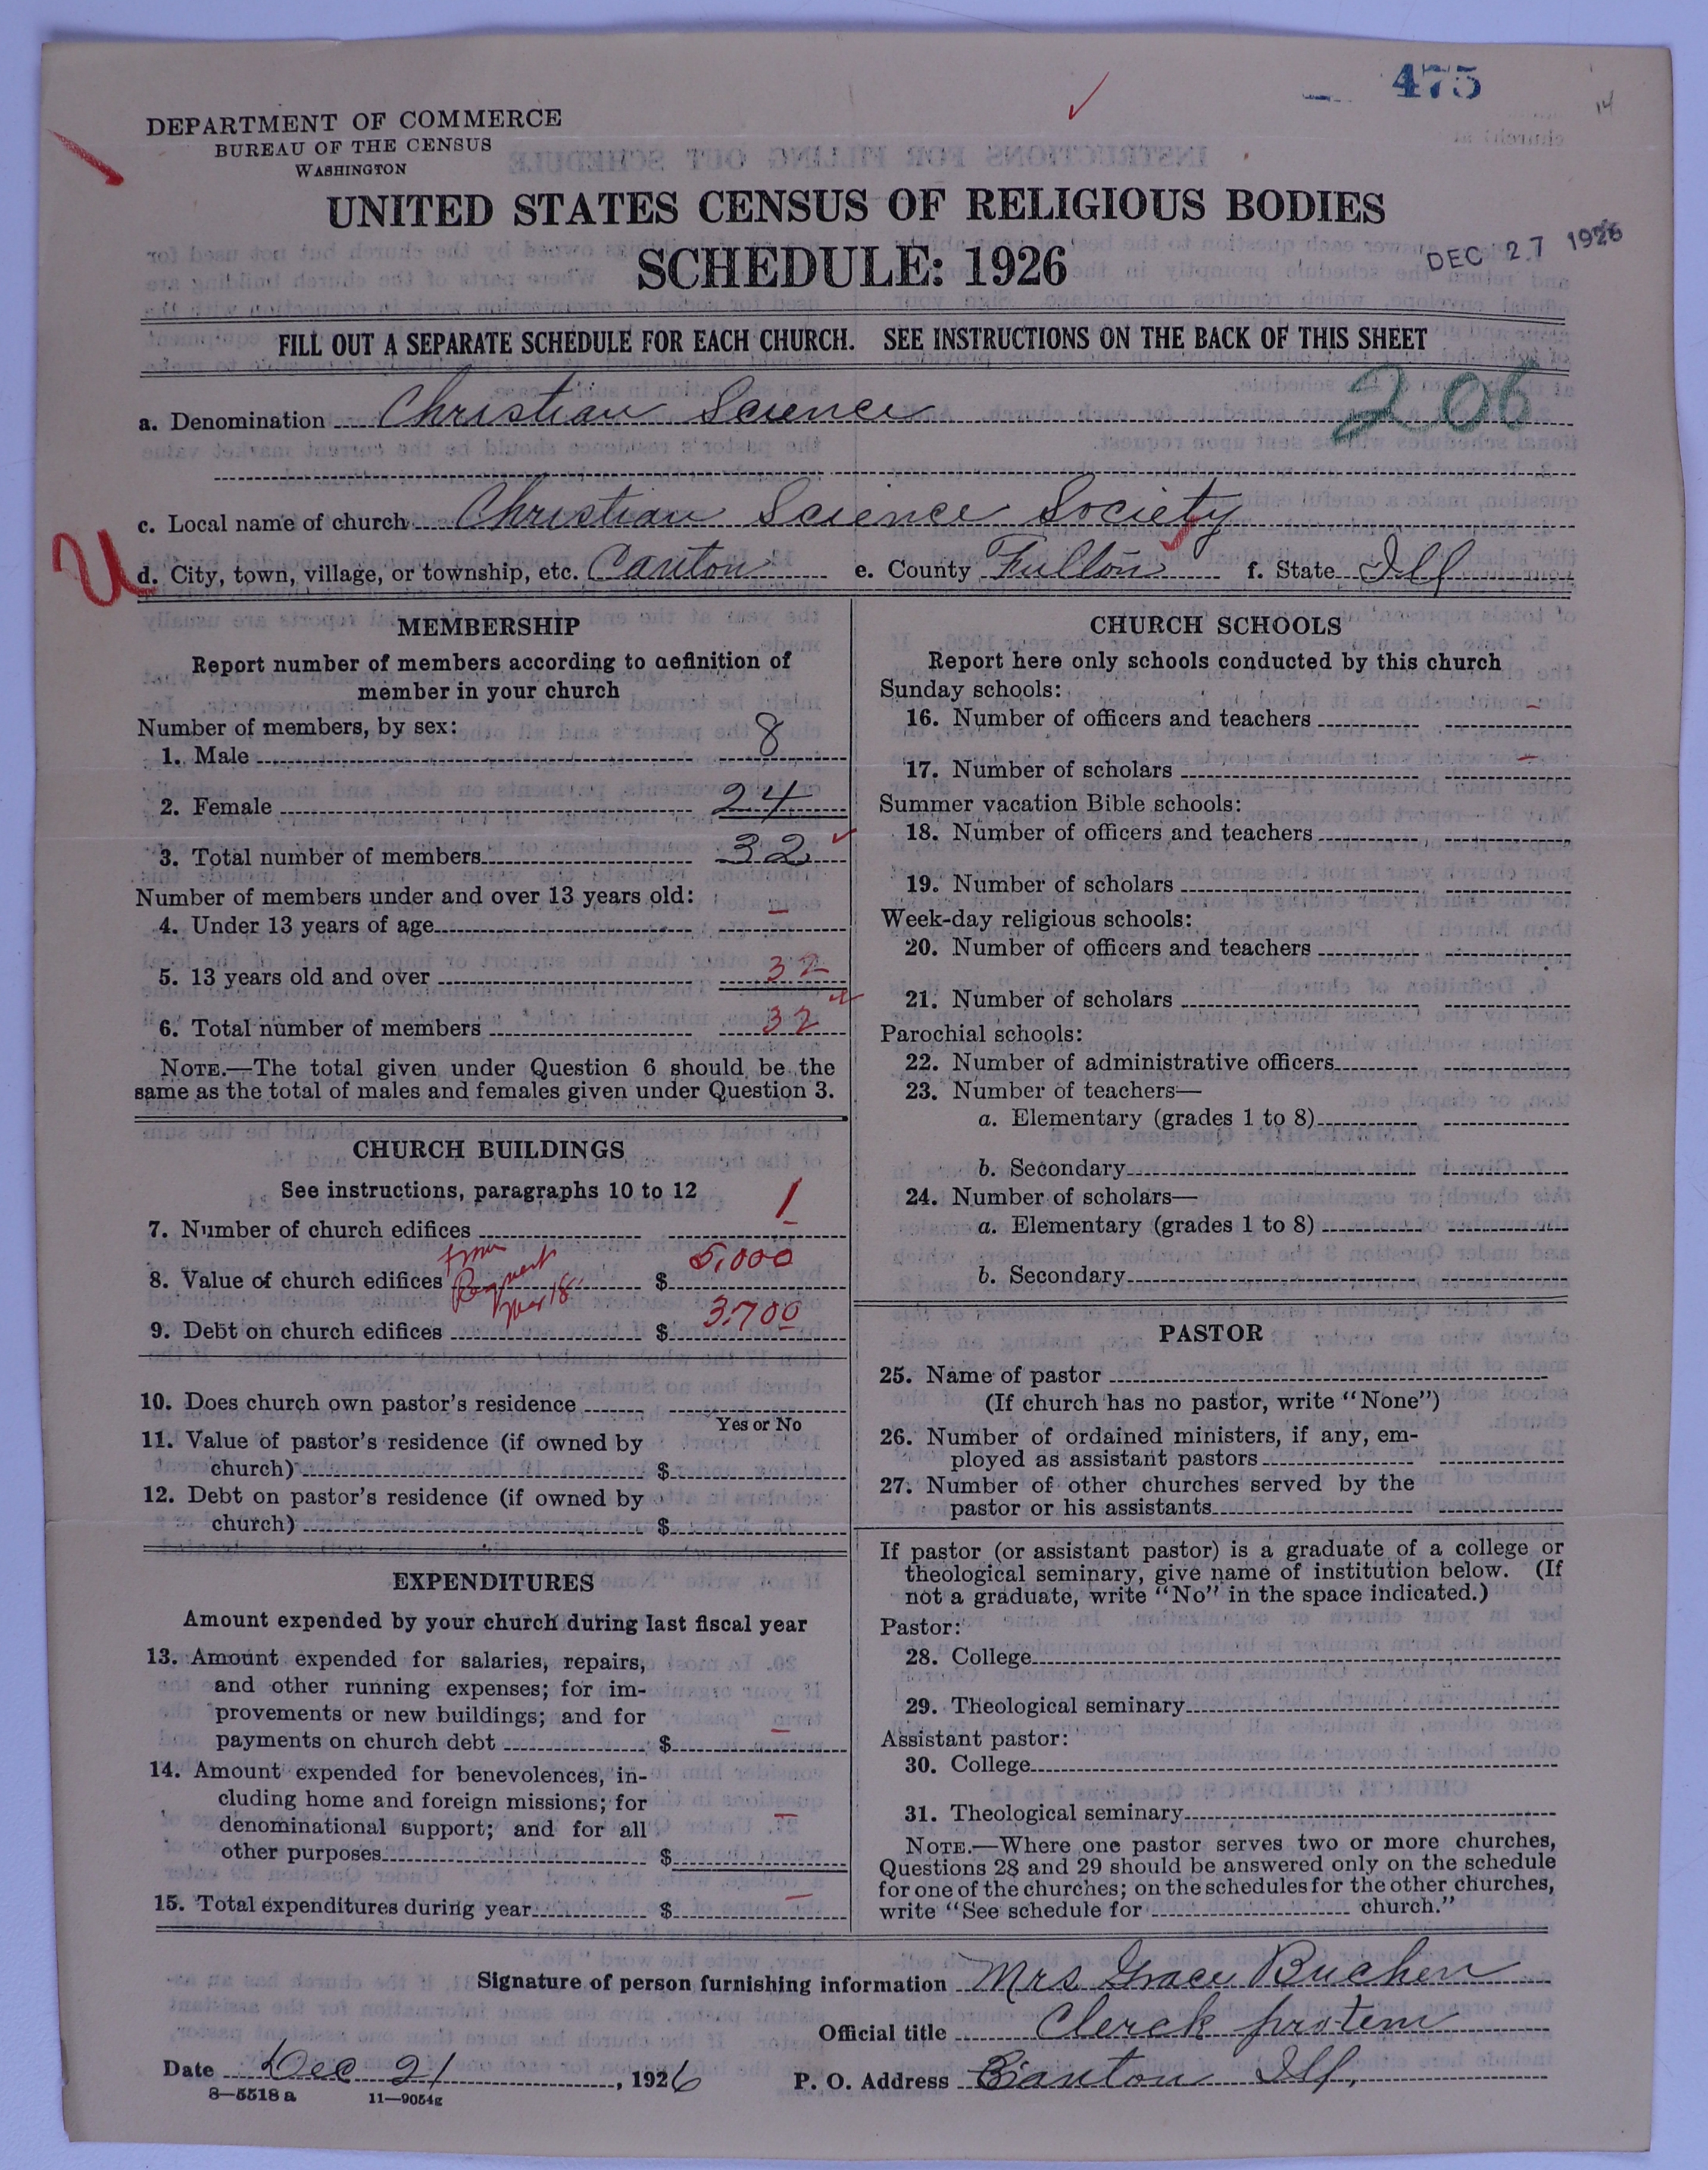 475
14
DEPARTMENT OF COMMERCE
BUREAU OF THE CENSUS
WASHINGTON
UNITED STATES CENSUS OF RELIGIOUS BODIES
SCHEDULE: 1926
DEC 27 1926
FILL OUT A SEPARATE SCHEDULE FOR EACH CHURCH. SEE INSTRUCTIONS ON THE BACK OF THIS SHEET
206
a. Denomination Christian Science
c. Local name of church Christian Science Society
U
d. City, town, village, or township, etc. Canton e. County Fulton f. State Ill
MEMBERSHIP
Report number of members according to definition of
member in your church
Number of members, by sex:
1. Male 8
2. Female 24
3. Total number of members 32
Number of members under and over 13 years old:
4. Under 13 years of age –
5. 13 years old and over 32
6. Total number of members 32
NOTE.—The total given under Question 6 should be the
same as the total of males and females given under Question 3.
CHURCH BUILDINGS
See instructions, paragraphs 10 to 12
7. Number of church edifices 1
8. Value of church edifices $ 5,000
9. Debt on church edifices $ 3700
10. Does church own pastor's residence
Yes or No
11. Value of pastor's residence (if owned by
church) $
12. Debt on pastor's residence (if owned by
church) $
EXPENDITURES
Amount expended by your church during last fiscal year
13. Amount expended for salaries, repairs,
and other running expenses; for im-
provements or new buildings; and for
payments on church debt $ –
14. Amount expended for benevolences, in-
cluding home and foreign missions; for
denominational support; and for all
other purposes $ –
15. Total expenditures during year $ –
CHURCH SCHOOLS
Report here only schools conducted by this church
Sunday schools:
16. Number of officers and teachers –
17. Number of scholars –
Summer vacation Bible schools:
18. Number of officers and teachers
19. Number of scholars
Week-day religious schools:
20. Number of officers and teachers
21. Number of scholars
Parochial schools:
22. Number of administrative officers
23. Number of teachers—
a. Elementary (grades 1 to 8)
b. Secondary
24. Number of scholars—
a. Elementary (grades 1 to 8)
b. Secondary
PASTOR
25. Name of pastor
(If church has no pastor, write "None")
26. Number of ordained ministers, if any, em-
ployed as assistant pastors
27. Number of other churches served by the
pastor or his assistants
If pastor (or assistant pastor) is a graduate of a college or
theological seminary, give name of institution below. (If
not a graduate, write "No" in the space indicated.)
Pastor:
28. College
29. Theological seminary
Assistant pastor:
30. College
31. Theological seminary
NOTE.—Where one pastor serves two or more churches,
Questions 28 and 29 should be answered only on the schedule
for one of the churches; on the schedules for the other churches,
write "See schedule for church."
Signature of person furnishing information Mrs Grace Bucher
Official title Clerk protem
Date Dec 21, 1926 P. O. Address Canton Ill.
8—5518 a 11—9054g